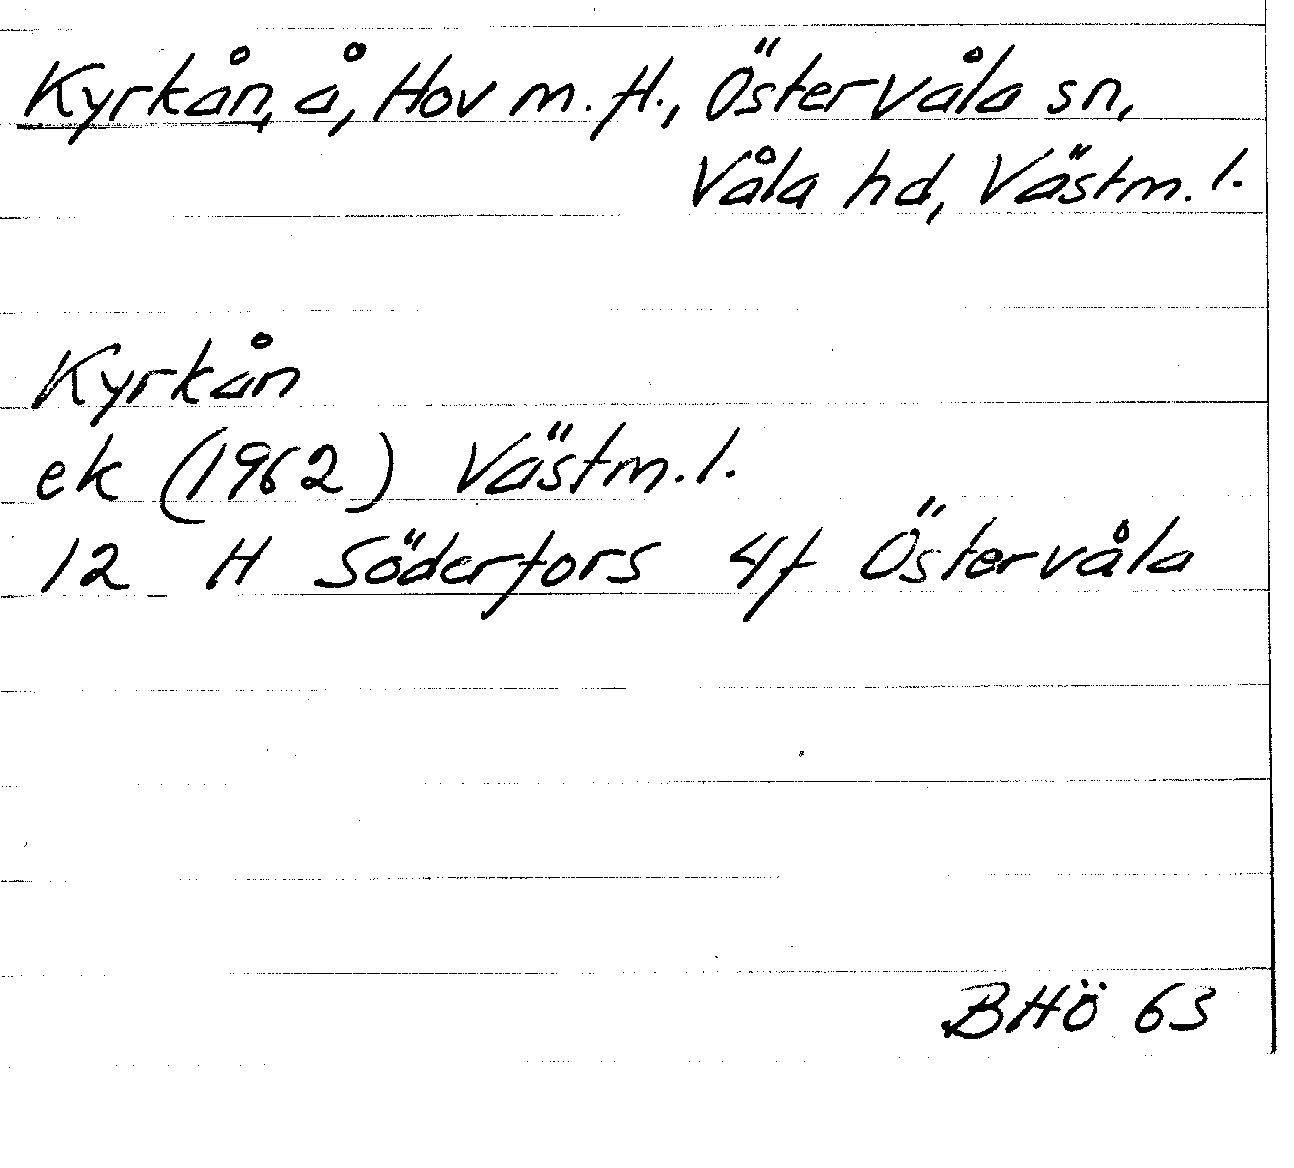 Kyrkån, å, Hov m. fl., Östervåla sn,
Våla hd, Västm. l.
Kyrkån
ek (1962) Västm. l.
12 H Söderfors 4f Östervåla
BHÖ 63